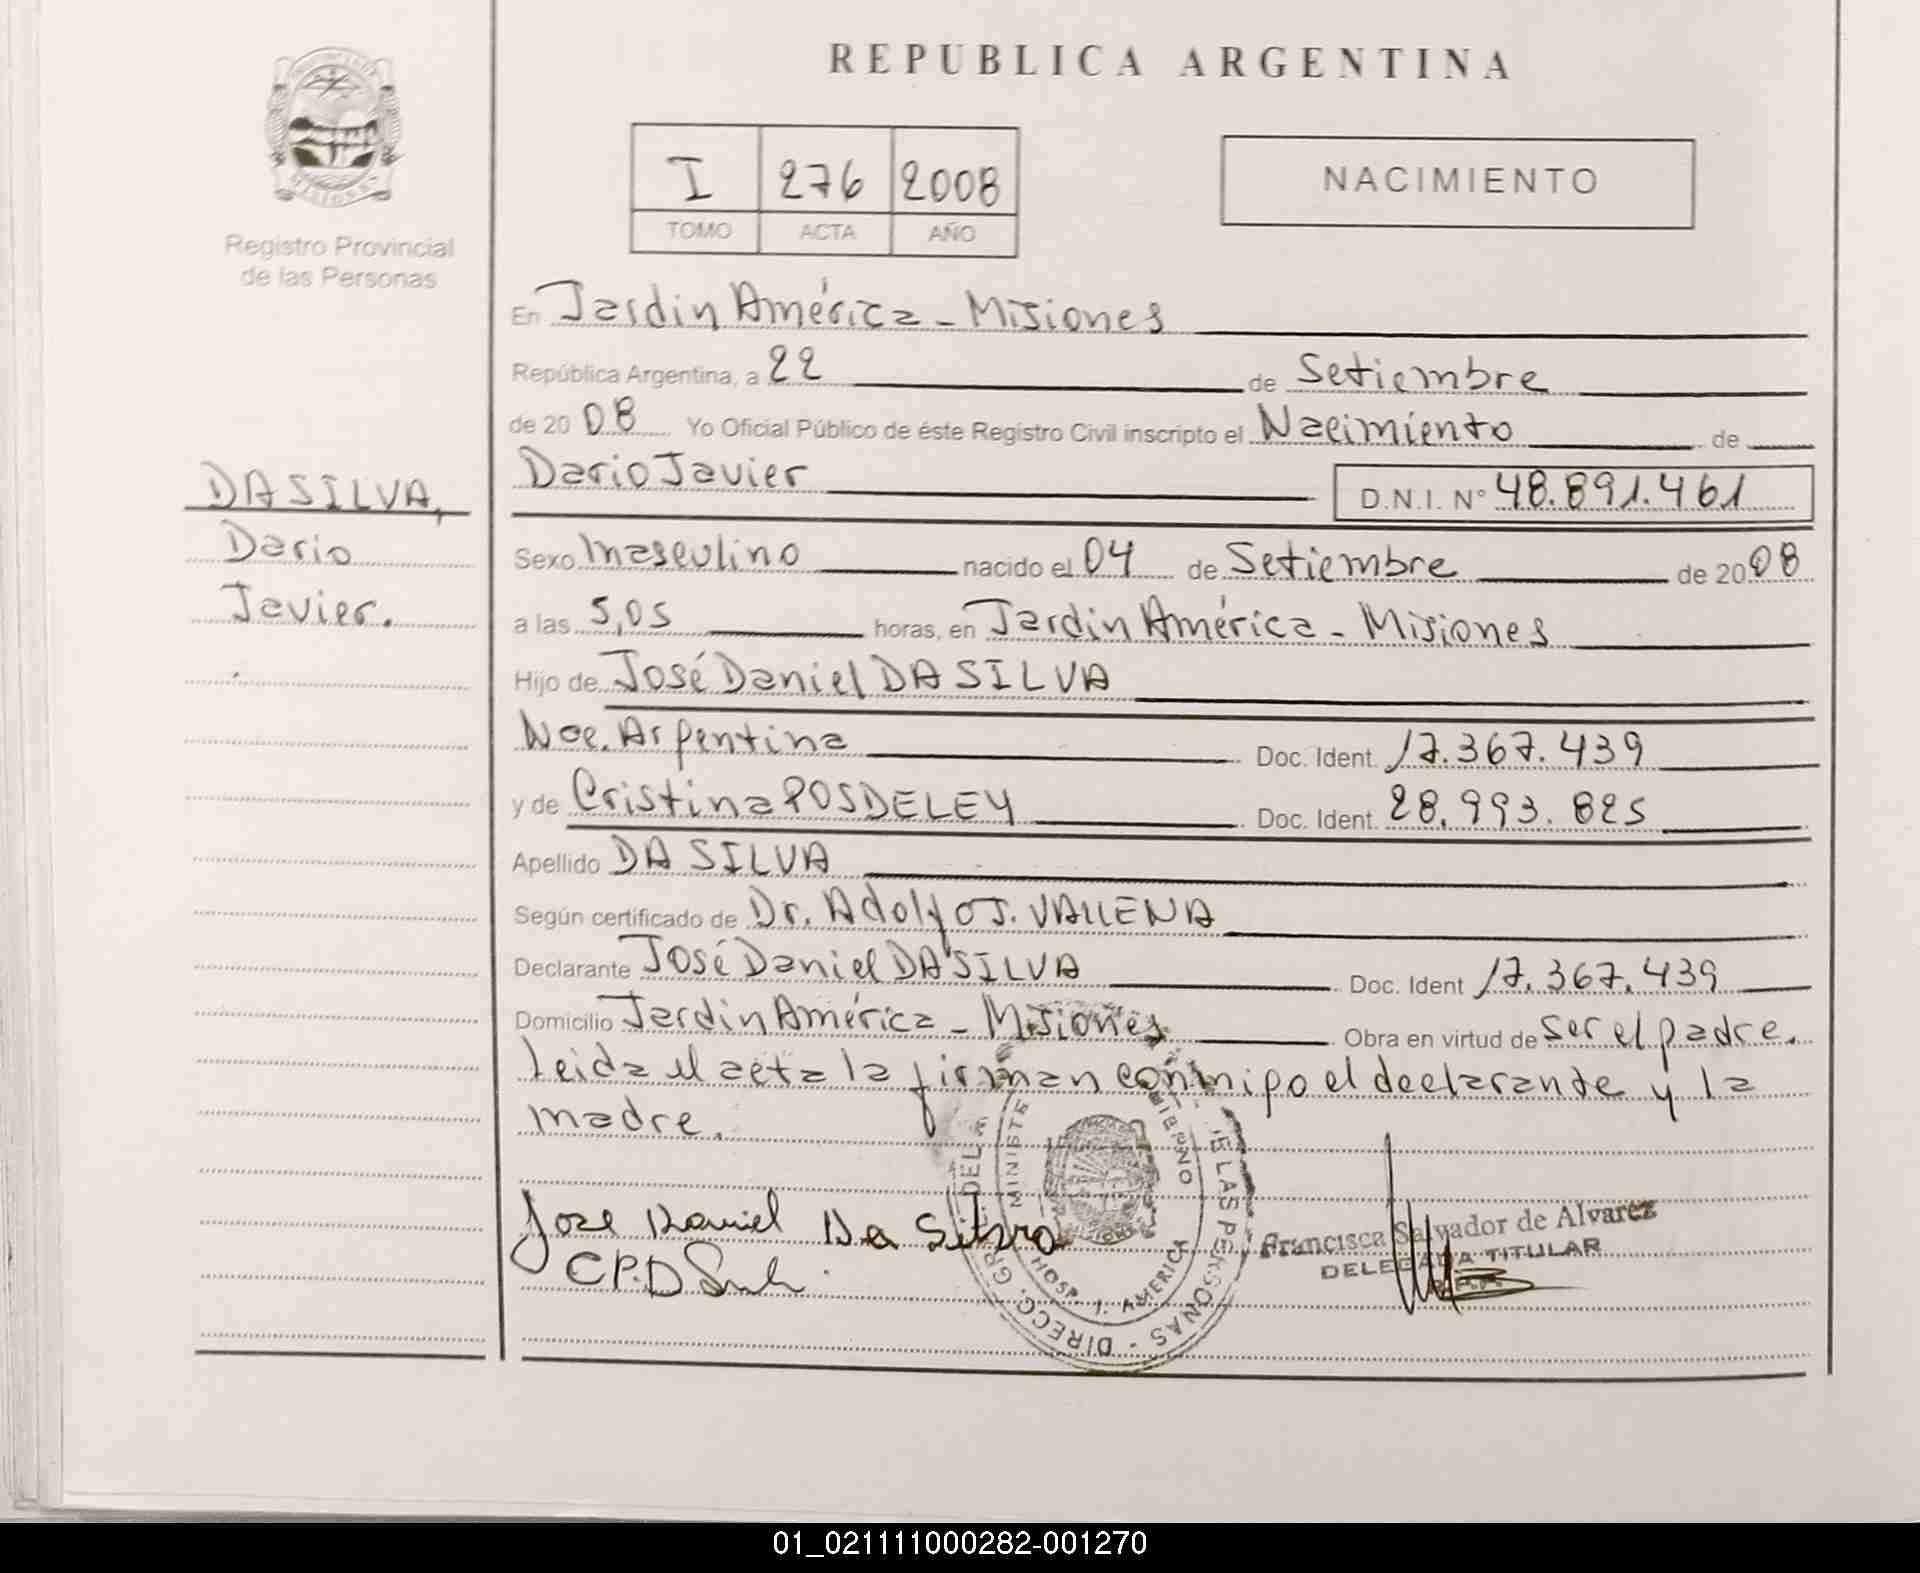 REPUBLICA ARGENTINA
Registro Provincial
de las Personas
I 276 2008
TOMO ACTA AÑO
NACIMIENTO
DA SILVA,
Dario
Javier.
En Jardin América - Misiones
República Argentina, a 22 de Setiembre
de 2008 Yo Oficial Público de éste Registro Civil inscripto el Nacimiento de
Dario Javier D.N.I. N° 48.891.461
Sexo masculino nacido el 04 de Setiembre de 2008
a las 5,05 horas, en Jardin América - Misiones
Hijo de José Daniel DA SILVA
Nac. Argentina Doc. Ident. 17.367.439
y de Cristina POSDELEY Doc. Ident. 28.993.825
Apellido DA SILVA
Según certificado de Dr. Adolfo J. VALLENA
Declarante José Daniel DA SILVA Doc. Ident 17.367.439
Domicilio Jardin América - Misiones Obra en virtud de ser el padre.
Leida el acta la firman conmigo el declarante y la
madre.
Jose Daniel Da Silva
C.P.D
MINISTE
HOSP. J. AMERICA
DIRECC. GRAL. DEL
E LAS PERSONAS
Francisca Salvador de Alvarez
DELEGADA TITULAR
01_021111000282-001270